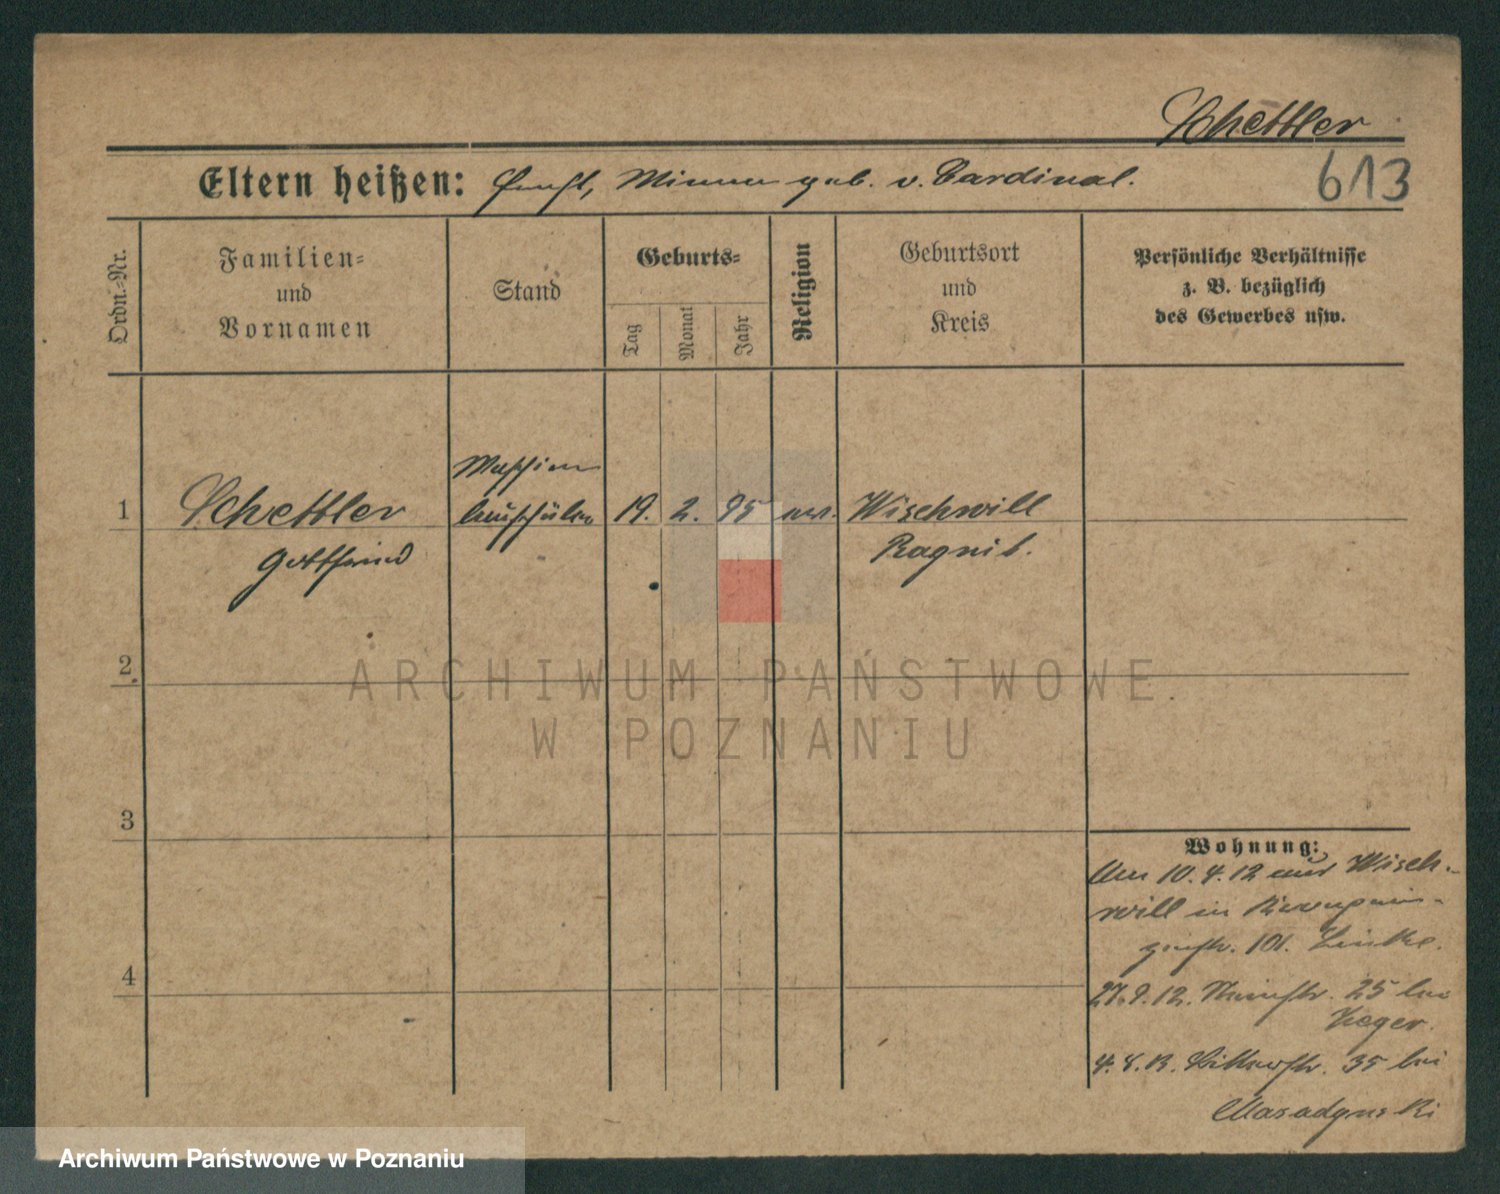 Schettler
Eltern heißen: Ernst, Minna geb. v. Cardinal.
613
Ordn.-Nr.
Familien- und Vornamen
Stand
Geburts-
Tag
Monat
Jahr
Religion
Geburtsort und Kreis
Persönliche Verhältnisse
z. B. bezüglich
des Gewerbes usw.
1
Schettler
Gottfried
Maschinen
bauschüler
19. 2. 95
Wischwill
Ragnit.
2
ARCHIWUM PAŃSTWOWE
W POZNANIU
3
4
Wohnung:
Am 10.4.12 aus Wisch-
will in
101. Linke.
27.9.12. 25 bei
Krger.
4.8.13. 35 bei
Archiwum Państwowe w Poznaniu